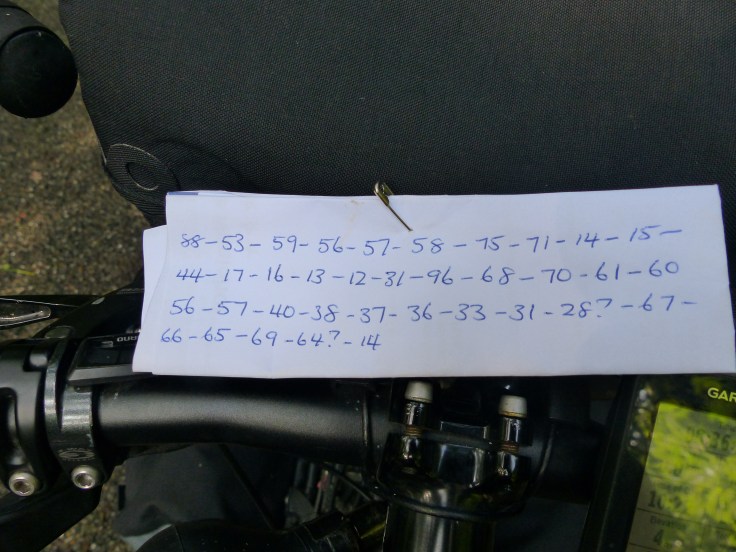 88-53-59-56-57-58-75-71-14-15-
44-17-16-13-12-31-96-68-70-61-60
56-57-40-38-37-36-33-31-28?-67-
66-65-69-64?-14
GAR